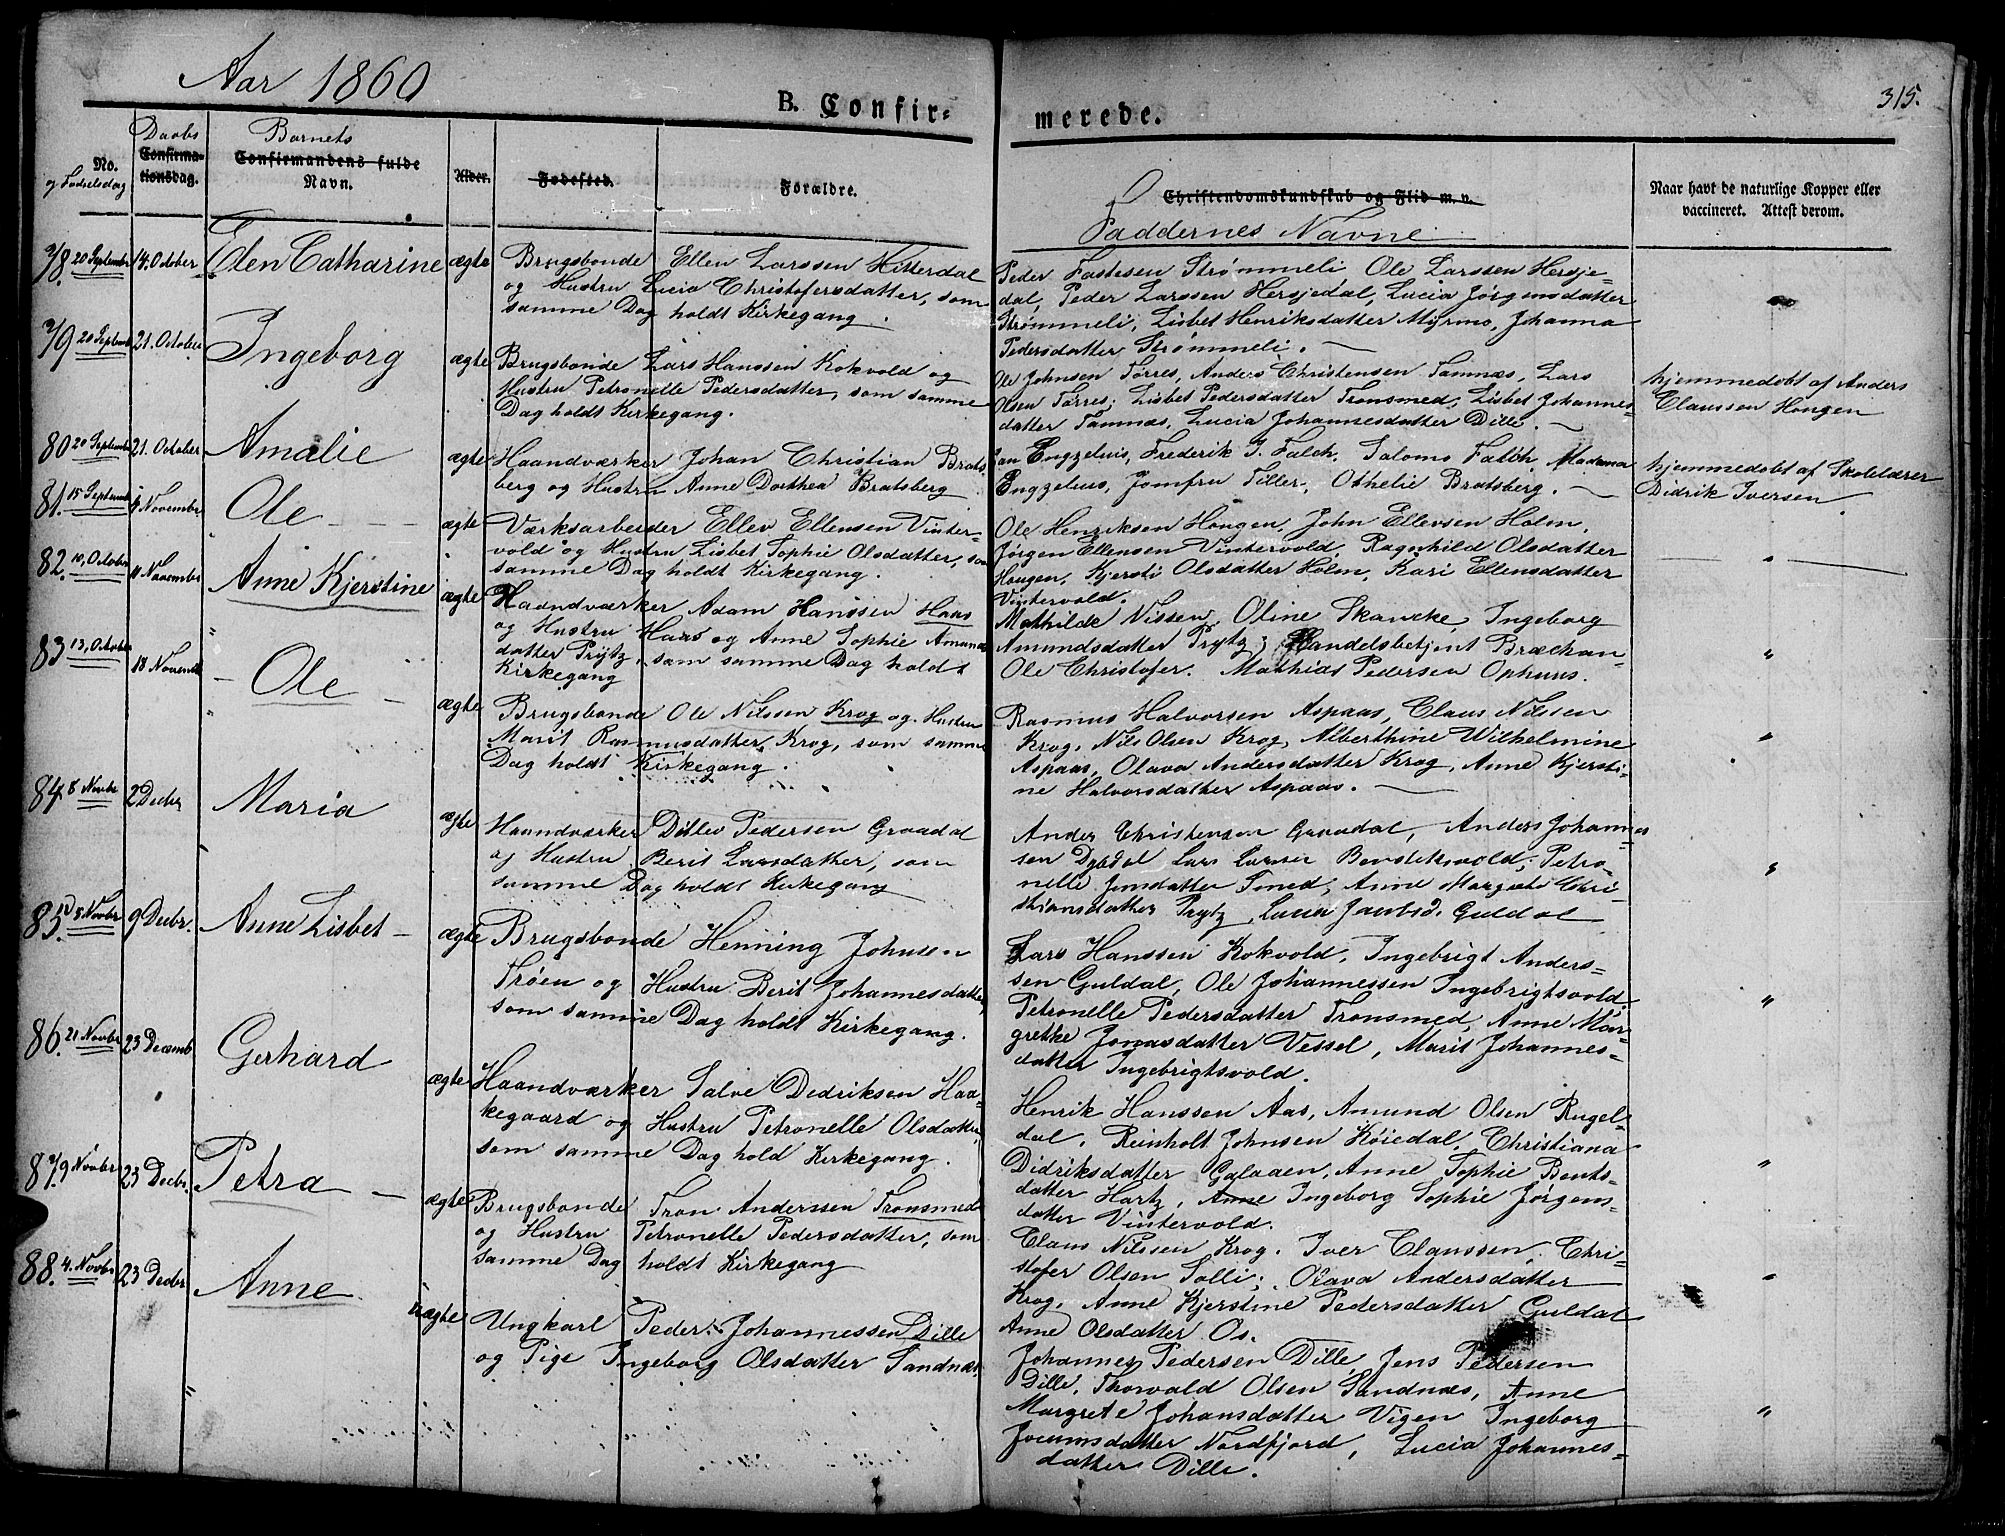 Aar 1860
315.
B. Confir=
merede.
Daabs
Barnets
No.
og Fødselsdag
Confirma-
tionsdag.
Confirmandens fulde
Navn.
Alder.
Fødested.
Forældre.
Christendomskundskab og Flid m. v.
Faddernes Navne
Naar havt de naturlige Kopper eller
vaccineret. Attest derom.
78. 20 September
14. October
Elen Catharine
ægte
Brugsbonde Ellen Larssen Hitterdal
og Hustru Lucia Christofersdatter, som
samme Dag holdt Kirkegang.
Peder Fastesen Strømmeli Ole Larssen Hersje-
dal, Peder Larssen Hersjedal, Lucia Jørgensdatter
Strømmeli, Lisbet Henriksdatter Myrmo, Johanna
Pedersdatter Strømmeli.
79 20 Septemb
21. October
Ingeborg
ægte
Brugsbonde Lars Hanssen Kokvold og
Hustru Petronelle Pedersdatter, som samme
Dag holdt Kirkegang.
Ole Johnsen Tørres, Anders Christensen Tamnæs, Lars
Olsen Tørres; Lisbet Pedersdatter Tronsmed, Lisbet Johannes-
datter Tamnæs, Lucia Johannesdatter Dille.
hjemmedøbt af Anders
Claussen Hougen
80 20 Septemb
21. October
Amalie
ægte
Haandværker Johan Christian Brats-
berg og Hustru Anne Dorthea Bratsberg
Jan Engzelius, Frederik J. Falch, Salomo Falch, Madama
Engzelius, Jomfru Tiller, Othelie Bratsberg.
hjemmedøbt af Skolelærer
Didrik Iversen
81. 15 Septemb
4 November
Ole
ægte
Værksarbeider Ellev Ellensen Vinter-
vold og Hustru Lisbet Sophie Olsdatter, som
samme Dag holdt Kirkegang.
Ole Henriksen Hougen, John Ellevsen Holm,
Jørgen Ellensen Vintervold, Ragnhild Olsdatter
Hougen, Kjersti Olsdatter Holm, Kari Ellensdatter
Vintervold.
82. 10, October
11 November
Anne Kjerstine
ægte
Haandværker Adam Hanssen Haas
og Hustru Haas og Anne Sophie Amunds
datter Prytz, som samme Dag holdt
Kirkegang
Mathilde Nissen, Oline Skancke, Ingeborg
Amundsdatter Prytz; Handelsbetjent Brækhan-
Ole Christofer. Mathias Pedersen Ophuus.
83 13, October
18 November
Ole
ægte
Brugsbonde Ole Nilssen Krog og Hustru
Marit Rasmusdatter Krog, som samme
Dag holdt Kirkegang.
Rasmus Halvorsen Aspaas, Claus Nilssen
Krog, Nils Olsen Krog, Alberthine Wilhelmine
Aspaas, Olava Andersdatter Krog, Anne Kjersti-
ne Halvorsdatter Aspaas.
84. 8 Novbr
2 Decbr
Maria
ægte
Haandværker Ditlev Pedersen Graadal
og Hustru Berit Larsdatter, som
samme Dag holdt Kirkegang
Anders Christensen Graadal, Anders Johannes-
sen Dybdal Lars Larsen Bendiktsvold; Petro-
nelle Jonsdatter Smed, Anne Margrete Chri-
stiansdatter Prytz, Lucia Jacobsd. Guldal
85. 5 Novbr
9 Decbr.
Anne Lisbet
ægte
Brugsbonde Henning Johnsen
Trøen og Hustru Berit Johannesdatter,
som samme Dag holdt Kirkegang.
Lars Hanssen Kokvold, Ingebrigt Anders-
sen Guldal, Ole Johannessen Ingebrigtsvold,
Petronelle Pedersdatter Tronsmed, Anne Mar-
grethe Jonasdatter Vessel, Marit Johannes-
datter Ingebrigtsvold.
86. 21 Novbr
23 Decemb
Gerhard
ægte
Haandværker Salve Dedriksen Haa-
kegaard og Hustru Petronelle Olsdatter,
som samme Dag hold Kirkegang.
Henrik Hanssen Aas, Amund Olsen Rugel-
dal, Reinholt Johnsen Køiedal, Christiana
Didriksdatter Galaaen, Anne Sophie Bents-
datter Hartz, Anne Ingeborg Sophie Jørgens-
datter Vintervold.
87. 9 Novbr
23 Decbr.
Petra
ægte
Brugsbonde Tron Anderssen Tronsmed
og Hustru Petronelle Pedersdatter, som
samme Dag holdt Kirkegang
Claus Nilssen Krog. Iver Claussen, Chri-
stofer Olsen Solli; Olava Andersdatter
Krog, Anne Kjerstine Pedersdatter Guldal
Anne Olsdatter Os.
88. 4. Novbr
23 Decbr
Anne
uægte
Ungkarl Peder Johannessen Dille
og Pige Ingeborg Olsdatter Sandnæs.
Johannes Pedersen Dille, Jens Pedersen
Dille, Thorvald Olsen Sandnæs, Anne
Margrete Johansdatter Vigen Ingeborg
Jocumsdatter Nordfjord, Lucia Johannes-
datter Dille.